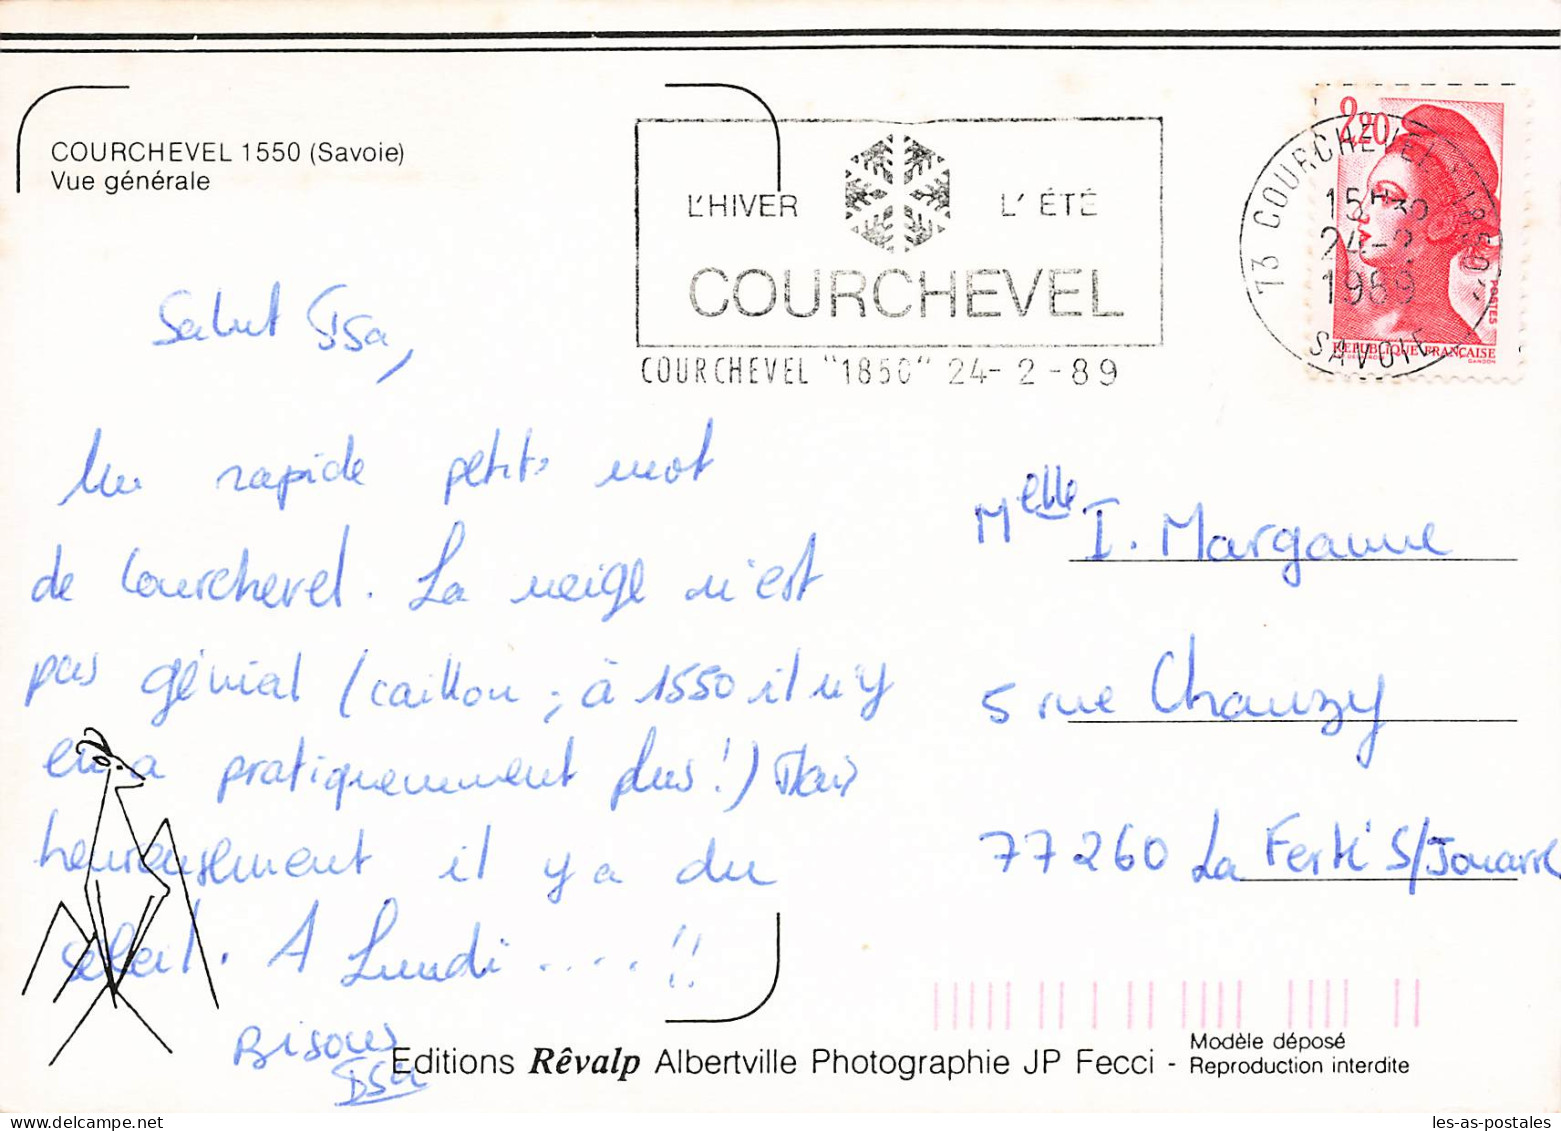 COURCHEVEL 1550 (Savoie)
Vue générale
L'HIVER L'ÉTÉ
COURCHEVEL
COURCHEVEL "1850" 24-2-89
2,20
POSTES
REPUBLIQUE FRANÇAISE
GANDON
73 COURCHEVEL 1850
15H30
24-2
1989
SAVOIE
Salut Isa,
Un rapide petit mot
de Courchevel. La neige n'est
pas génial (caillou ; à 1550 il n'y
en a pratiquemment plus!) Mais
heureusement il y a du
soleil. A Lundi ....!!
Bisous
Melle I. Marganne
5 rue Chauzy
77260 La Ferté S/Jouarre
Editions Rêvalp Albertville Photographie JP Fecci - Modèle déposé
Reproduction interdite
les-as-postales